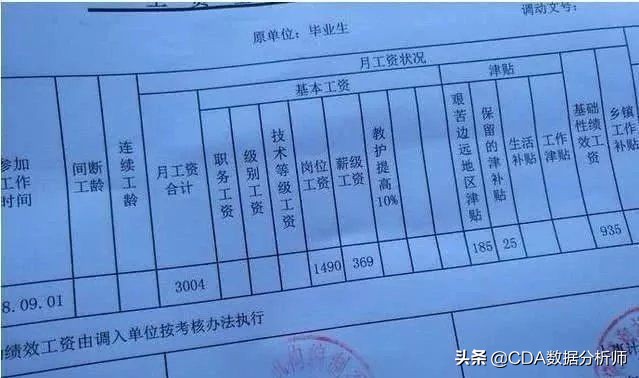 原单位：毕业生
调动文号：
月工资状况
基本工资
津贴
参加工作时间
间断工龄
连续工龄
月工资合计
职务工资
级别工资
技术等级工资
岗位工资
薪级工资
教护提高10%
艰苦边远地区津贴
保留的津补贴
生活补贴
工作津贴
基础性绩效工资
乡镇工作补贴
8.09.01
3004
1490
369
185
25
935
绩效工资由调入单位按考核办法执行
头条 @CDA数据分析师